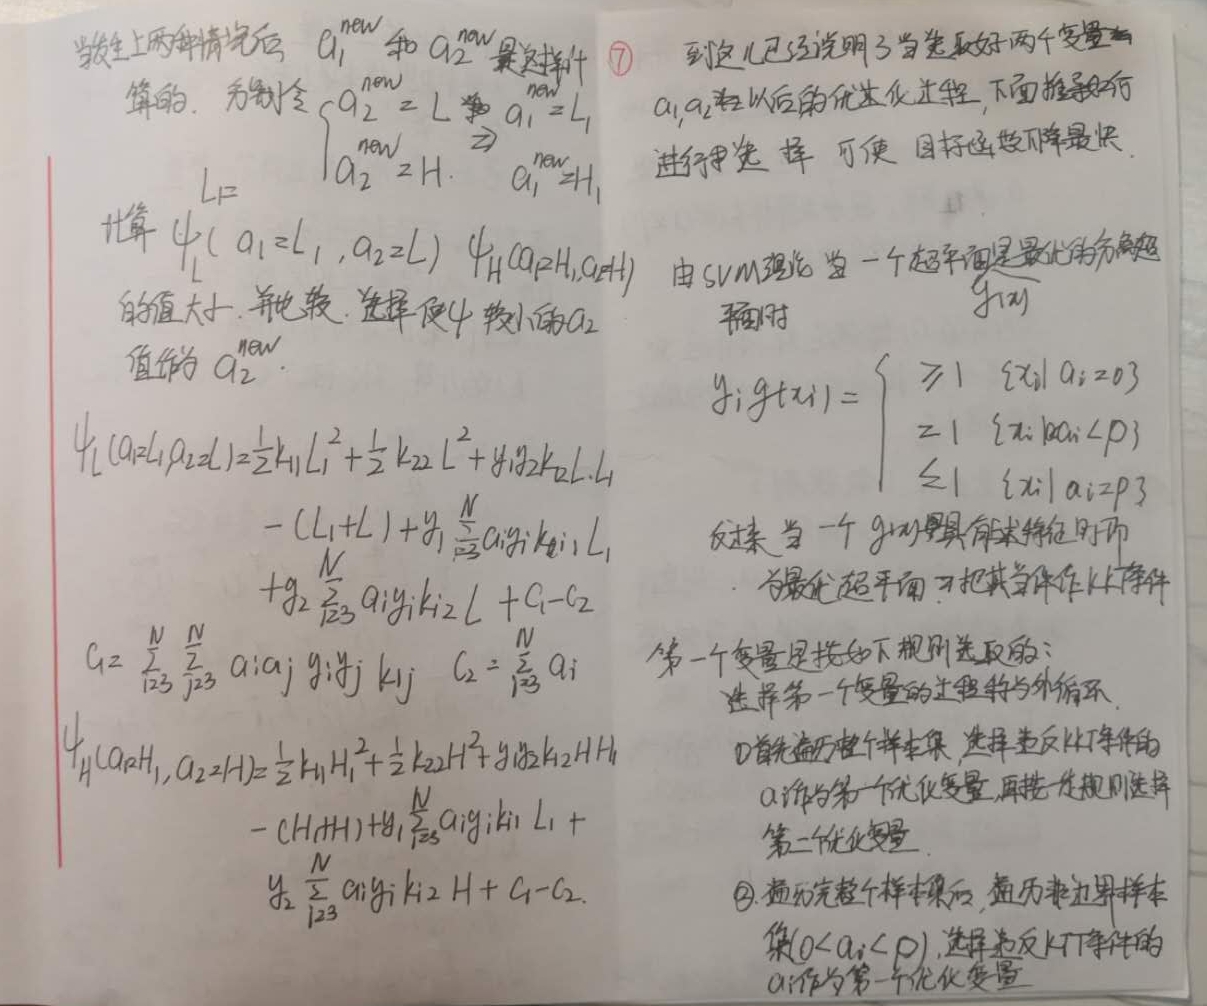 当发生上两种情况后 a₁ⁿᵉʷ 和 a₂ⁿᵉʷ 是这样计
算的. 分别令 { a₂ⁿᵉʷ = L ⇒ a₁ⁿᵉʷ = L₁
a₂ⁿᵉʷ = H. a₁ⁿᵉʷ = H₁
L₁=
计算 ψ_L( a₁=L₁ , a₂=L) ψ_H(a₁=H₁,a₂=H)
的值大小. 并比较. 选择使ψ较小的a₂
值作为 a₂ⁿᵉʷ.
ψ_L(a₁=L₁,a₂=L)=½k₁₁L₁²+½k₂₂L²+y₁y₂k₁₂L.L₁
-(L₁+L)+y₁ Σ_{i=3}^N aᵢyᵢkᵢ₁ L₁
+y₂ Σ_{i=3}^N aᵢyᵢkᵢ₂ L + C₁-C₂
C₁= Σ_{i=3}^N Σ_{j=3}^N aᵢaⱼ yᵢyⱼ kᵢⱼ C₂ = Σ_{i=3}^N aᵢ
ψ_H(a₁=H₁, a₂=H)=½k₁₁H₁²+½k₂₂H²+y₁y₂k₁₂HH₁
-(H₁+H)+y₁ Σ_{i=3}^N aᵢyᵢkᵢ₁ L₁ +
y₂ Σ_{i=3}^N aᵢyᵢkᵢ₂ H + C₁-C₂.
⑦ 到这儿已经说明了当选取好两个变量
a₁,a₂ 以后的优化过程,下面推导如何
进行选择 可使 目标函数下降最快.
由SVM理论 当一个超平面是最优的分离超
g(x)
平面时
yᵢg(xᵢ)= { ≥1 {xᵢ| aᵢ=0}
=1 {xᵢ|0<aᵢ<p}
≤1 {xᵢ| aᵢ=p}
反过来 当一个 g(x) 具有上述特征时即
为最优超平面 可把其当作作KKT条件
第一个变量是按如下规则选取的:
选择第一个变量的过程称为外循环.
①首先遍历整个样本集,选择违反KKT条件的
aᵢ作为第一个优化变量,再按一定规则选择
第二个优化变量.
②.遍历完整个样本集后,遍历非边界样本
集(0<aᵢ<p),选择违反KTT条件的
aᵢ作为第一个优化变量